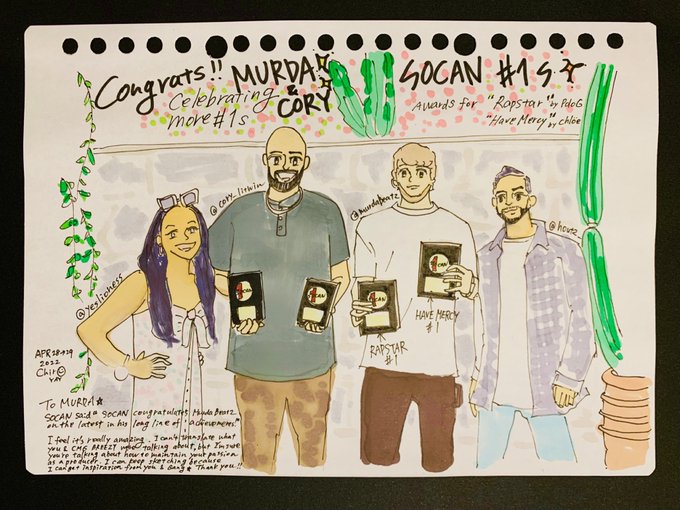 Congrats!! MURDA & CORY
SOCAN #1s
Celebrating
more #1s
Awards for "Rapstar" by PoloG
"Have Mercy" by chlöe
@cory_litwin
@murdabeatz
@yeslichess
@houtz
SOCAN
SOCAN
SOCAN
SOCAN
HAVE MERCY
#1
RAPSTAR
#1
APR 28→29
2022
Chir©
YAY
To MURDA☆
SOCAN said "SOCAN congratulates Murda Beatz
on the latest in his long line of achievements."
I feel it's really amazing. I can't translate what
you & CMG BREEZY were talking about, but I'm sure
you're talking about how to maintain your passion
as a producer. I can keep sketching because
I can get inspiration from you & Gang★ Thank you!!